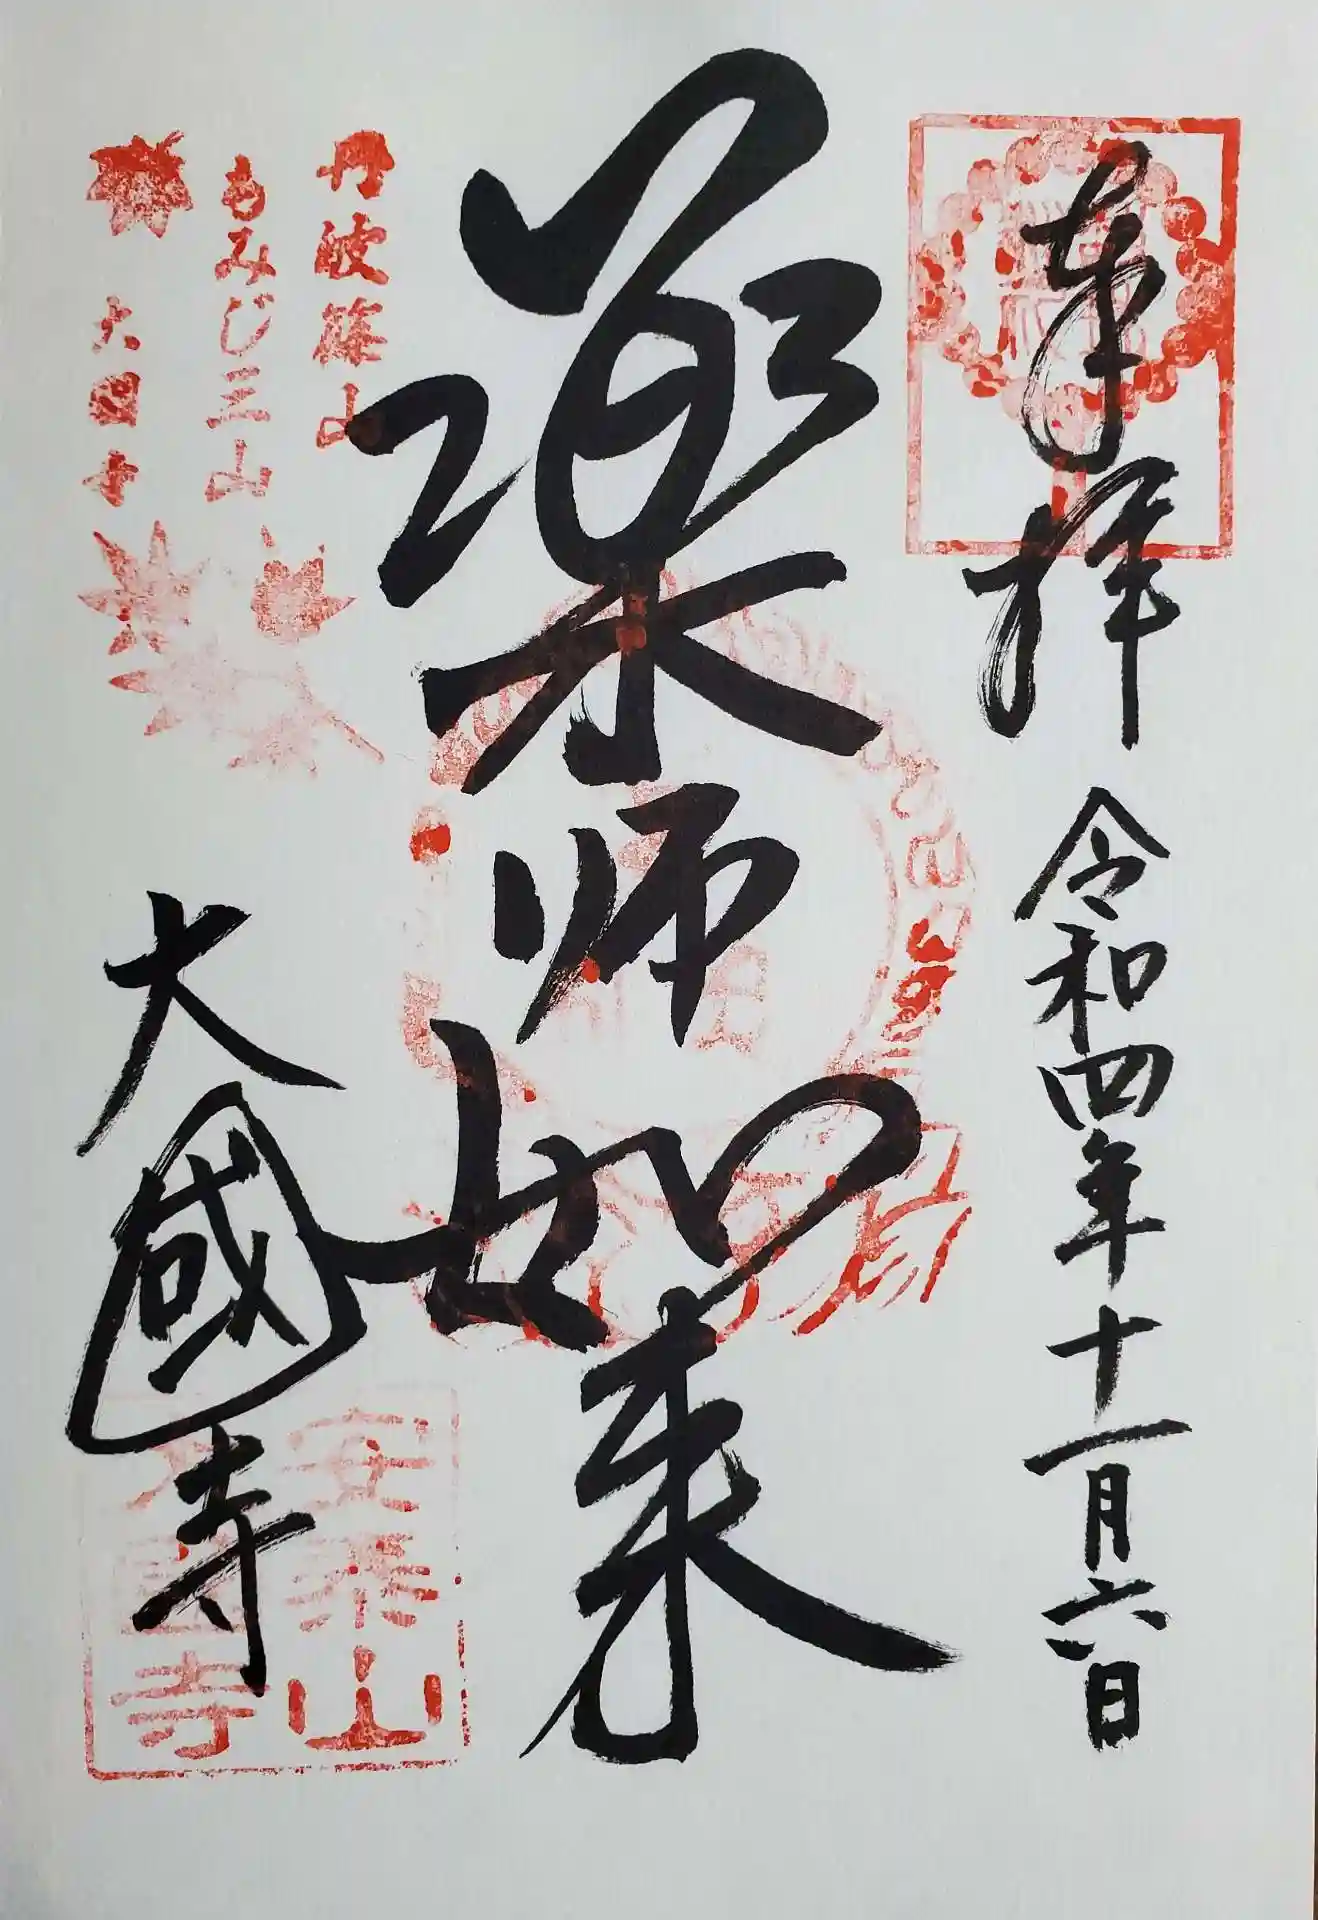 奉拝
令和四年十一月六日
薬師如来
丹波篠山
もみじ三山
大國寺
大國寺
安泰山
大國寺